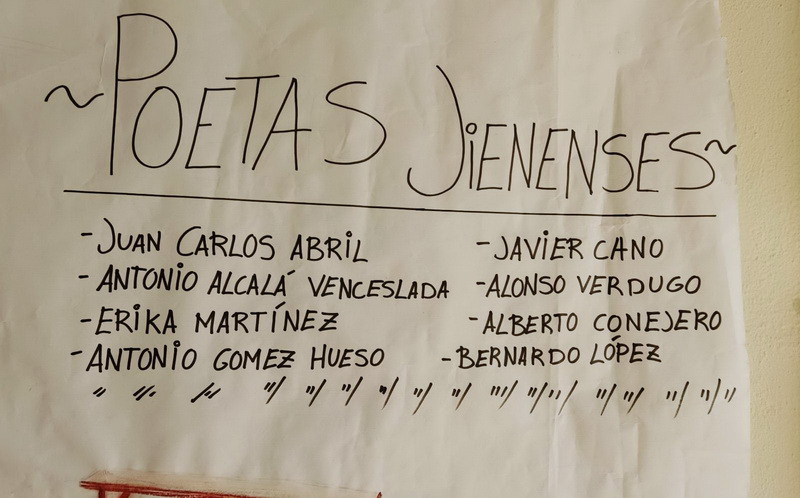 ~POETAS JiENENSES~
-JUAN CARLOS ABRiL
-ANTONiO ALCALÁ VENCESLADA
-ERiKA MARTÍNEZ
-ANTONiO GOMEZ HUESO
-JAViER CANO
-ALONSO VERDUGO
-ALBERTO CONEJERO
-BERNARDO LÓPEZ